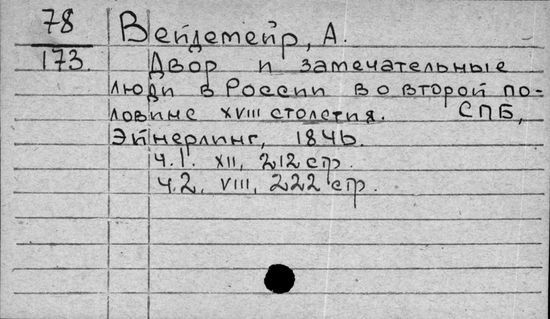 78 Вейдемейр, А.
173. Двор и замечательные
люди в России во второй по-
ловине XVIII столетия. СПБ,
Эйнерлинг, 1846.
Ч.1. XII, 212 стр.
Ч.2. VIII, 222 стр.